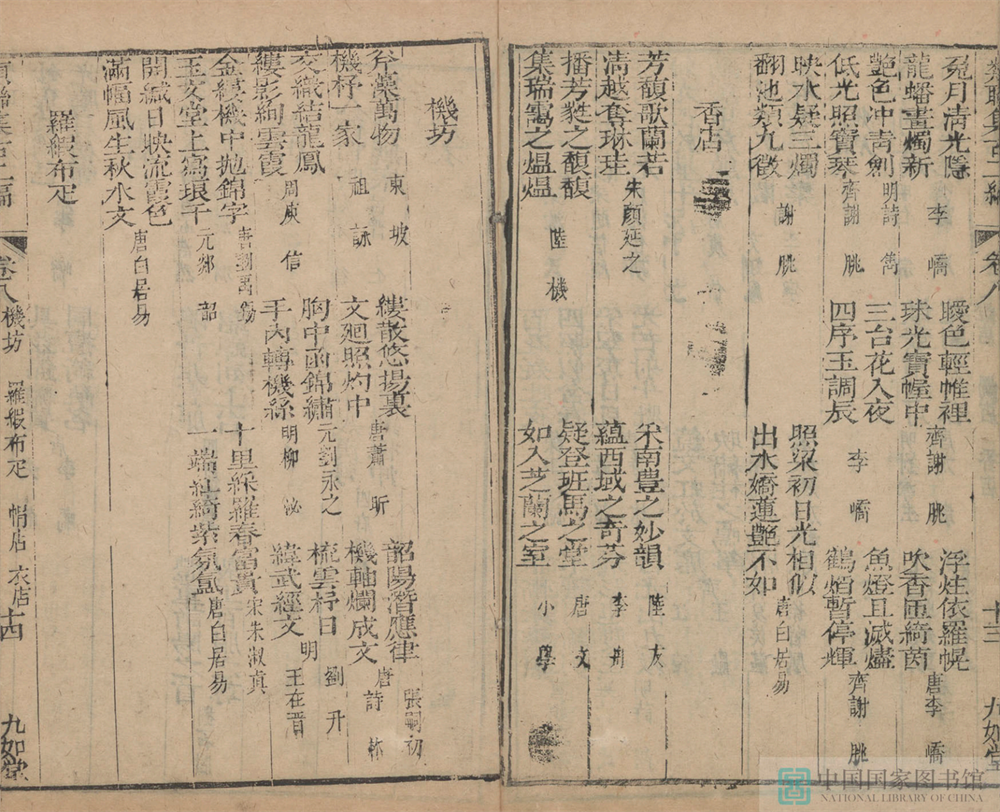 兔月清光隱 李嶠 曖色輕帷裡 齊謝朓 浮炷依羅幌 唐李嶠
龍蟠畫燭新 珠光寶幄中 吹香匝綺茵
艷色冲青劍 明詩儁 三台花入夜 李嶠 魚燈且滅燼 齊謝朓
低光照寶琴 齊謝朓 四序玉調辰 鶴焰暫停輝
映水疑三燭 謝朓 照梁初日光相似 唐白居易
翻池類九微 出水嬌蓮艷不如
香店
芳馥歌蘭若 宋顏延之 宋南豊之妙韻 陸友
清越奪琳珪 蘊西域之奇芬 李邢
播芳蕤之馥馥 陸機 疑登班馬之堂 唐文
集瑞靄之熅熅 如入芝蘭之室 小學
機坊
斧藻萬物 東坡 縷散悠揚裏 唐蕭昕 韶陽潛應律 張嗣初
機杼一家 祖詠 文廻照灼中 機軸爛成文 唐詩
交織結龍鳳 周庾信 胸中函錦繡 元劉永之 梳雲杼日 劉升
縷影絢雲霞 手內轉機絲 明柳泌 緯武經文 明王在晋
金縷機中拋錦字 唐劉禹錫 十里綵羅春富貴 宋朱淑真
玉文堂上寫琅玕 元鄭韶 一端紅綺紫氛氳 唐白居易
開緘日映流霞色 唐白居易
滿幅風生秋水文
羅緞布疋
卷八 機坊 羅緞布疋 帽店 衣店 十四 九如堂
卷八 十三 九如堂
中国国家图书馆
NATIONAL LIBRARY OF CHINA